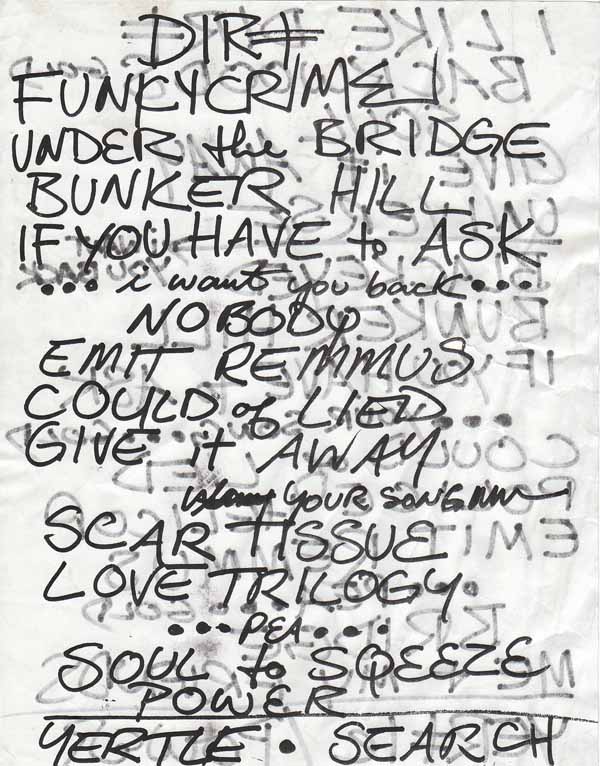 DIRt
FUNKYCRIME
UNDER the BRIDGE
BUNKER HILL
IF YOU HAVE to ASK
... i want you back ...
NOBODY
EMIT REMMUS
COULD of LIED...
GIVE it AWAY
YOUR SONG
SCAR TISSUE
LOVE TRILOGY.
...PEA...
SOUL to SQEEZE
POWER
YERTLE • SEARCH